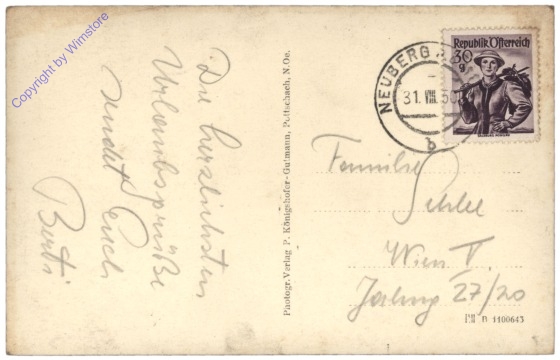 Copyright by Wimstore
Die herzlichsten
Urlaubsgrüße
sendet Euch
Berti
Photogr. Verlag P. Königshofer-Gutmann, Pottschach, N.Oe.
NEUBERG
31. VIII. 50
b
Republik Österreich
30
g
Familie
Wien V
27/20
B 1100643